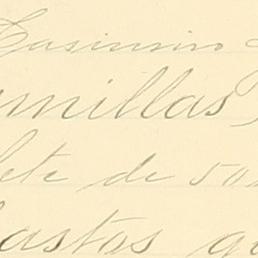 Casimiro
millas
ete de 50
astos